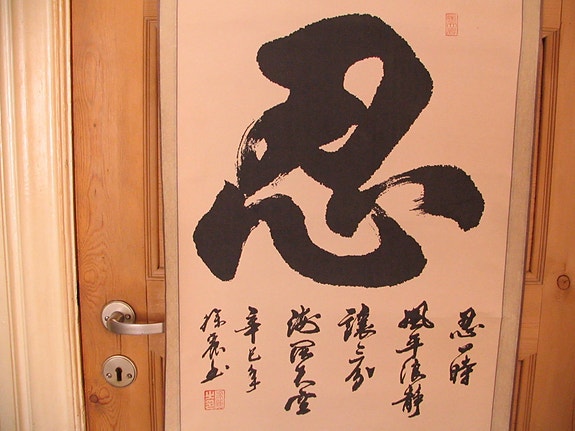 忍
忍一時
風平浪靜
讓三分
海闊天空
辛巳年
徐 书